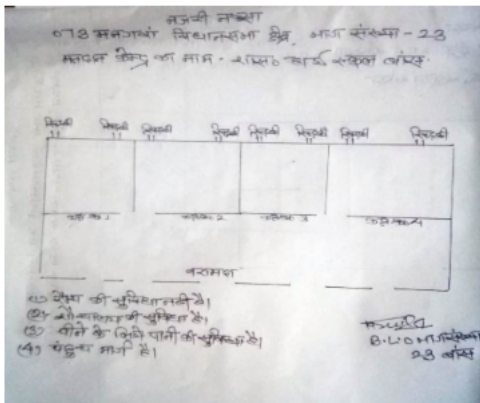 नजरी नक्शा
073 मनगवां विधानसभा क्षेत्र, भाग संख्या - 23
मतदान केन्द्र का नाम - शास0 स्कूल बांस
खिड़की खिड़की खिड़की खिड़की खिड़की खिड़की खिड़की खिड़की
कक्ष क्र0 1 कक्ष क्र 2 कक्ष क्र 3 कक्ष क्र 4
बरामदा
(1) रैम्प की सुविधा नही है।
(2) शौचालय की सुविधा है।
(3) पीने के लिये पानी की सुविधा है।
(4) पहुच मार्ग है।
B.L.O भाग संख्या
23 बांस